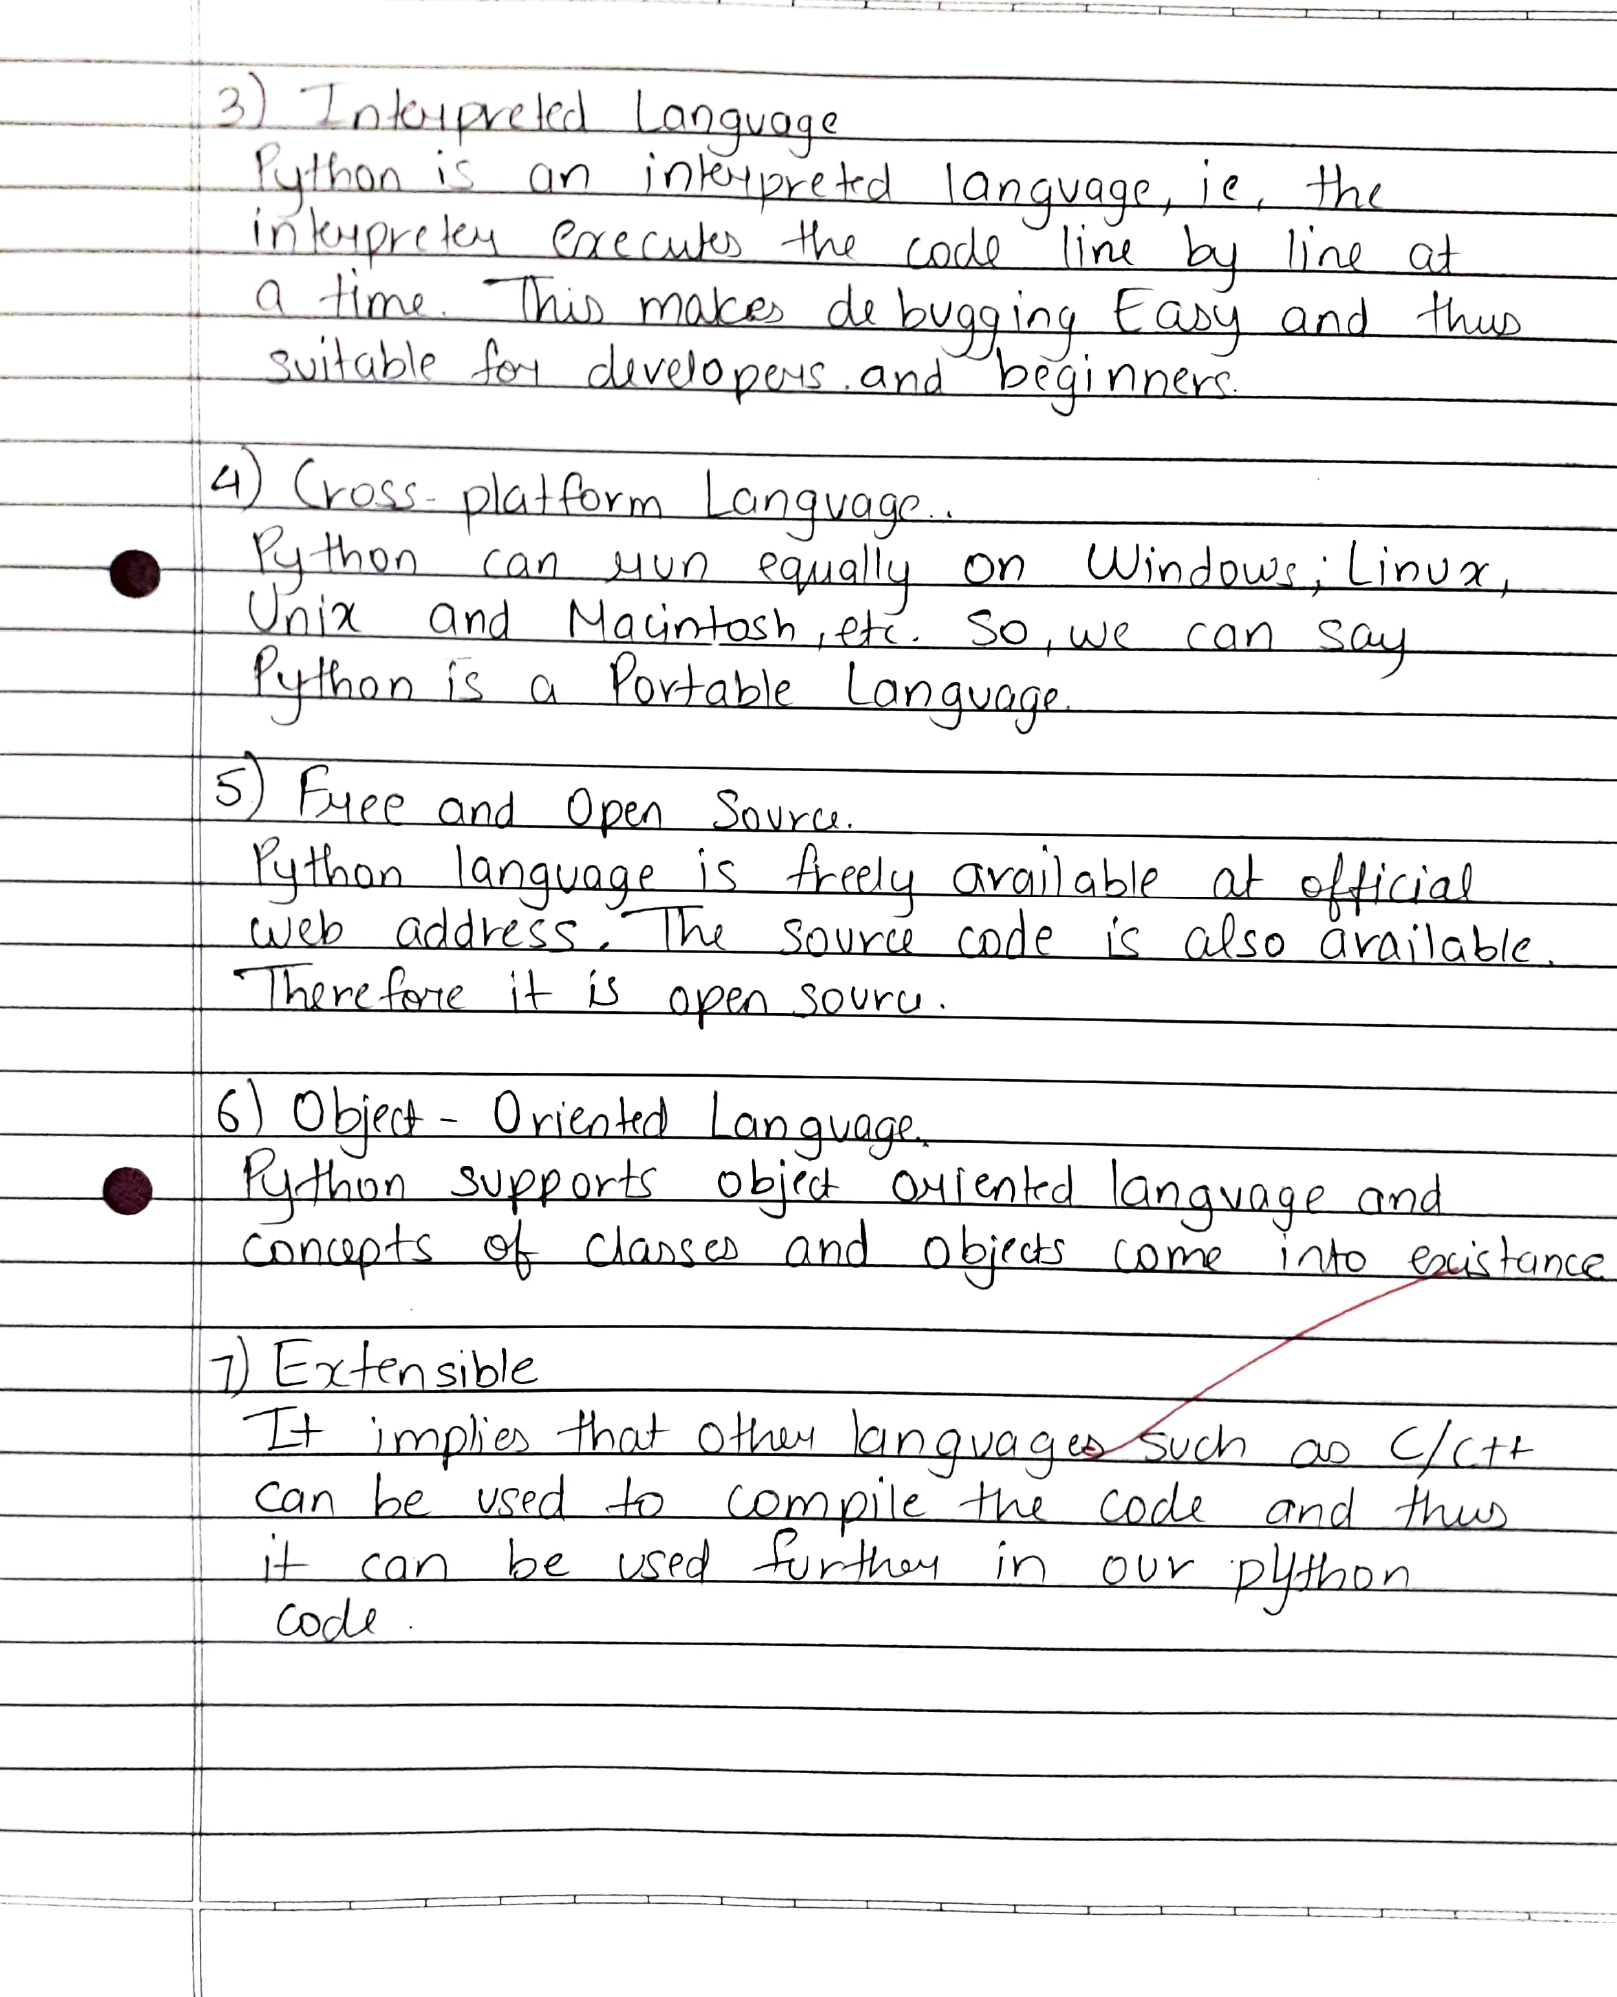 3) Interpreted Language
Python is an interpreted language, ie, the
interpreter executes the code line by line at
a time. This makes debugging Easy and thus
suitable for developers and beginners.
4) Cross-platform Language..
Python can run equally on Windows; Linux,
Unix and Macintosh, etc. So, we can say
Python is a Portable Language.
5) Free and Open Source.
Python language is freely available at official
web address. The source code is also available.
Therefore it is open source.
6) Object-Oriented Language.
Python supports object oriented language and
concepts of classes and objects come into existance
7) Extensible
It implies that other languages such as C/C++
can be used to compile the code and thus
it can be used further in our python
code.